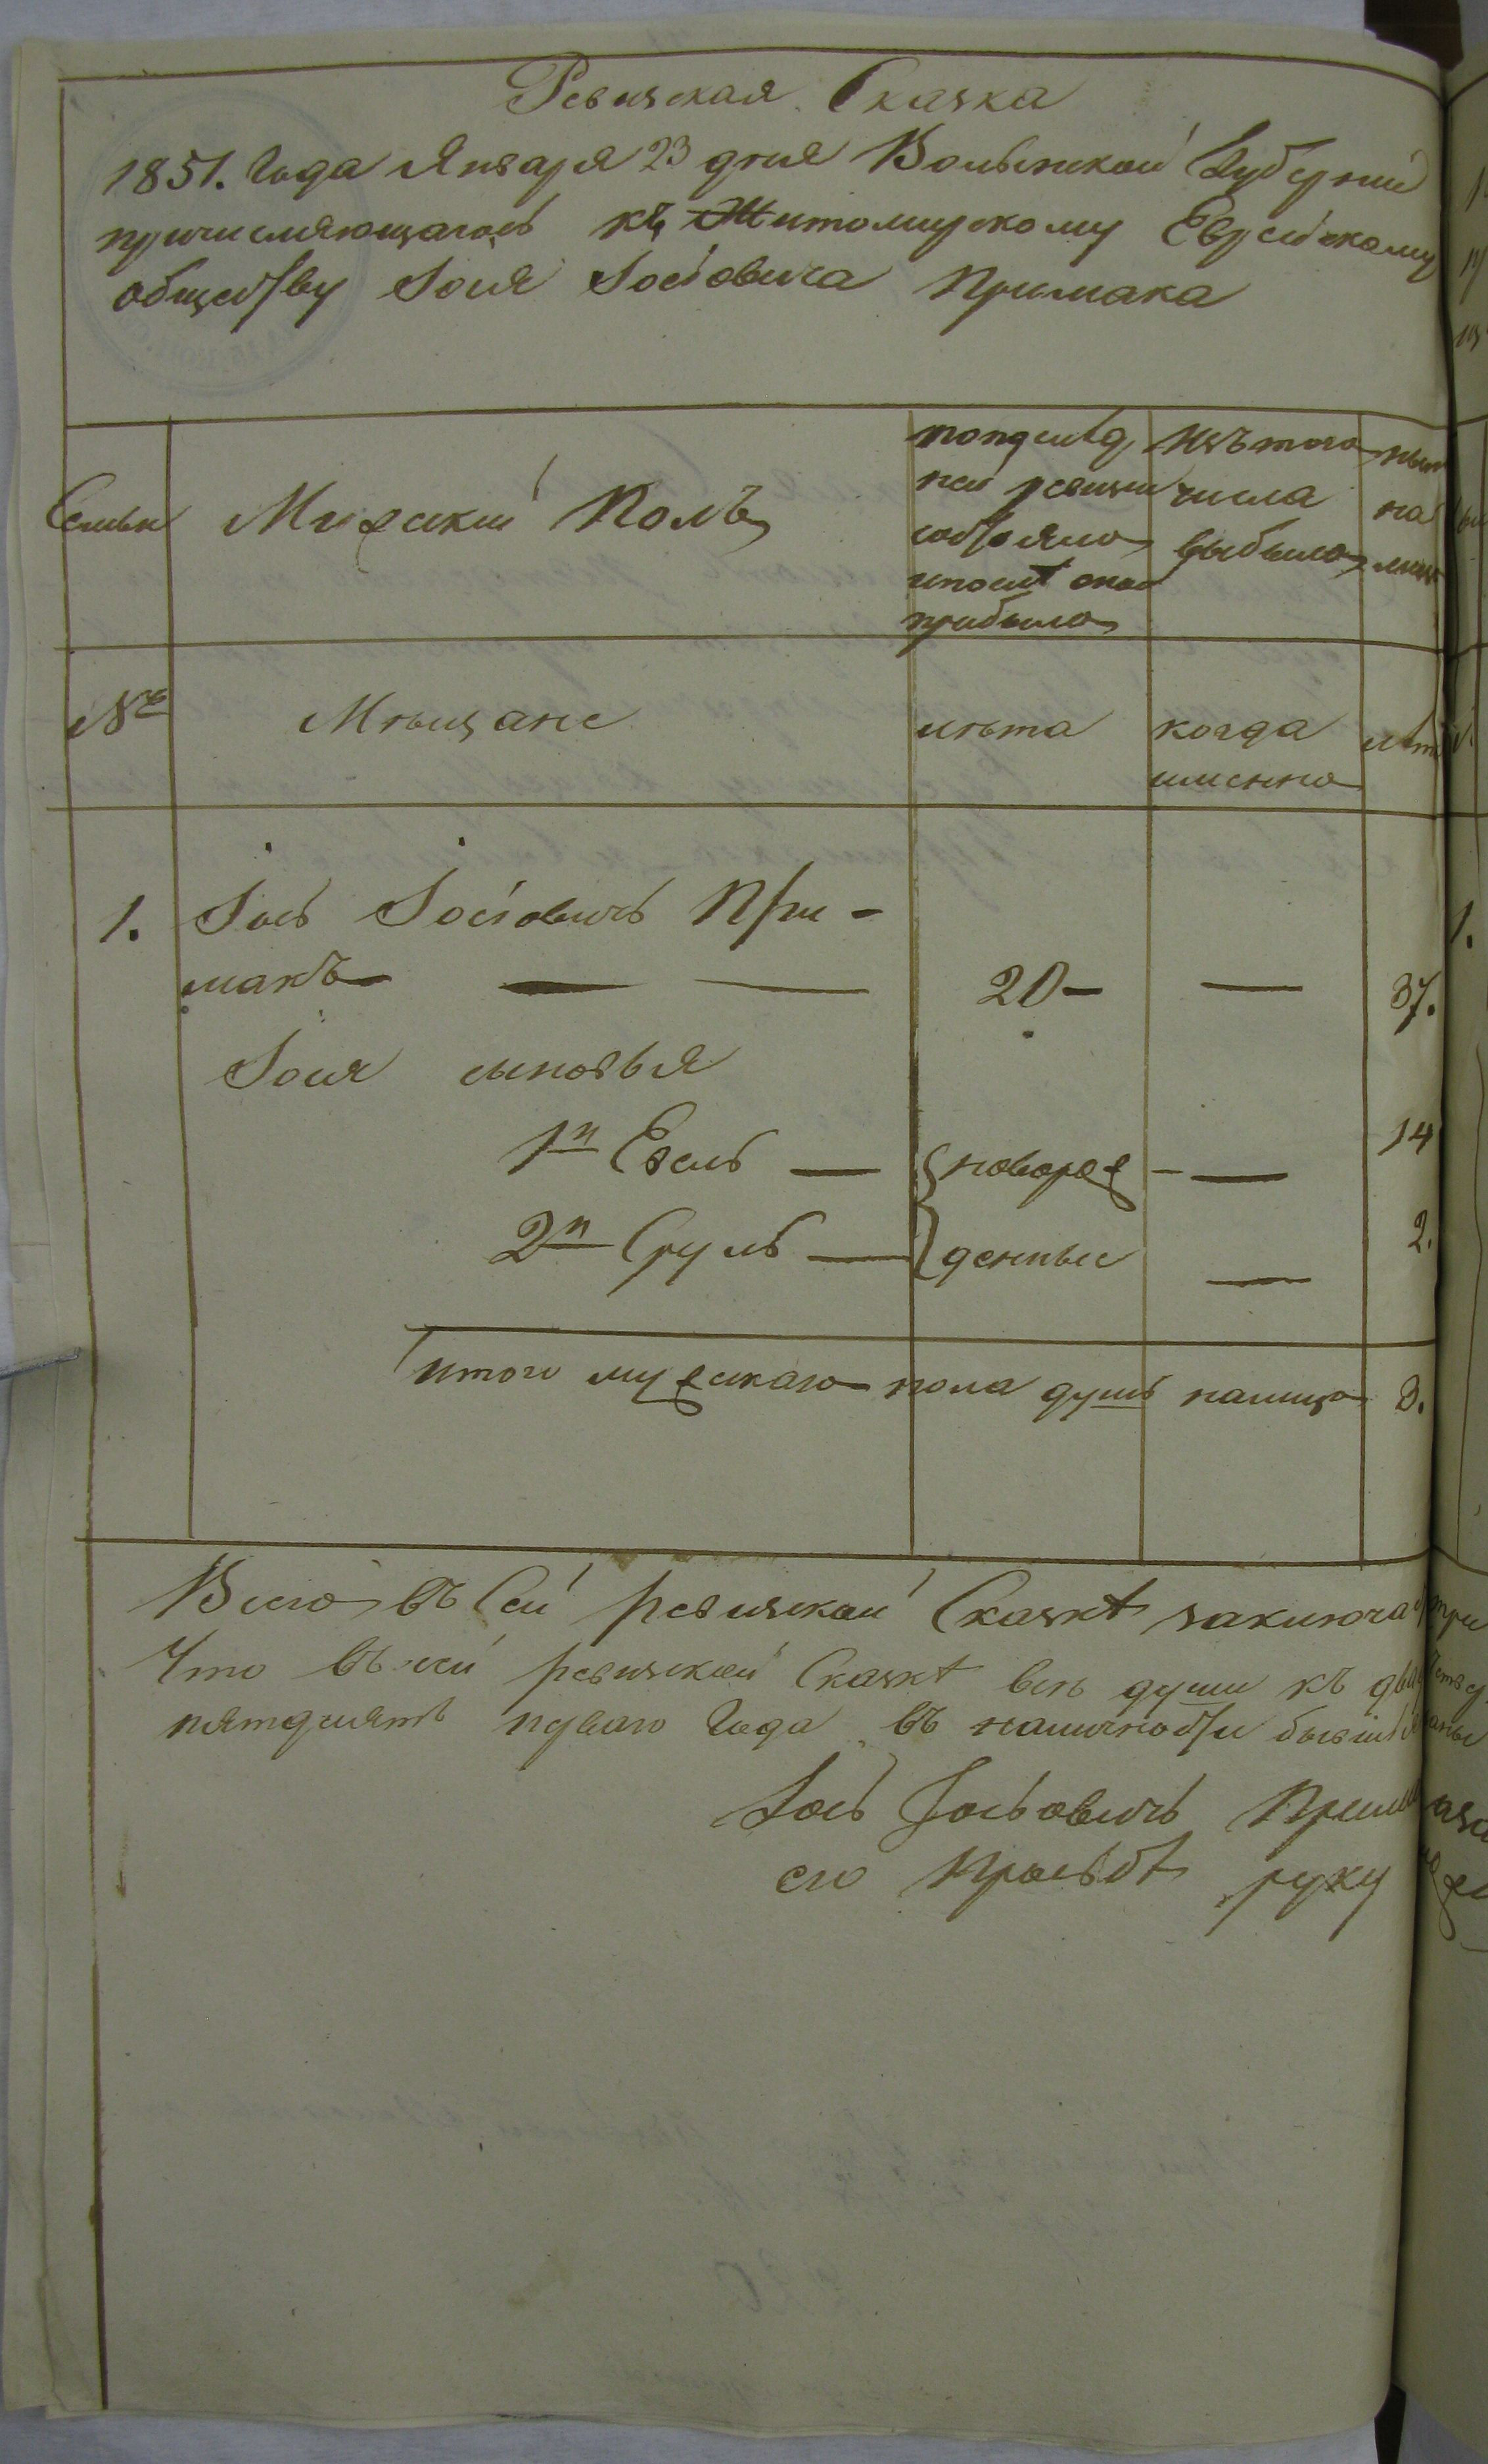 Ревизская Сказка
1851. Года Января 23 дня Волынской Губернии
причисляющагось къ Житомирскому Еврейскому
обществу Іося Іосіовича Примака
Семьи
Мужескій Полъ
по послѣд
ней ревизіи
состояло
и после оной
прибыло
Изъ того
числа
выбыло
ныне
на
лицо
№
Мѣщане
лѣта
когда
именно
лѣт
1. Іось Іосіовичъ При-
макъ — — 20 — — 37.
Іося сыновья
1й Евель — новорож — — 14
2й Сруль — денные — 2.
Итого мужескаго пола душъ налицо 3.
Всего въ Сей ревизской Сказкѣ заключа три
Что въ сей ревизской Сказкѣ всѣ души къ
пятдесятъ перваго Года въ наличности бывшія
Іось Іосьовичъ
его прозьбѣ руку